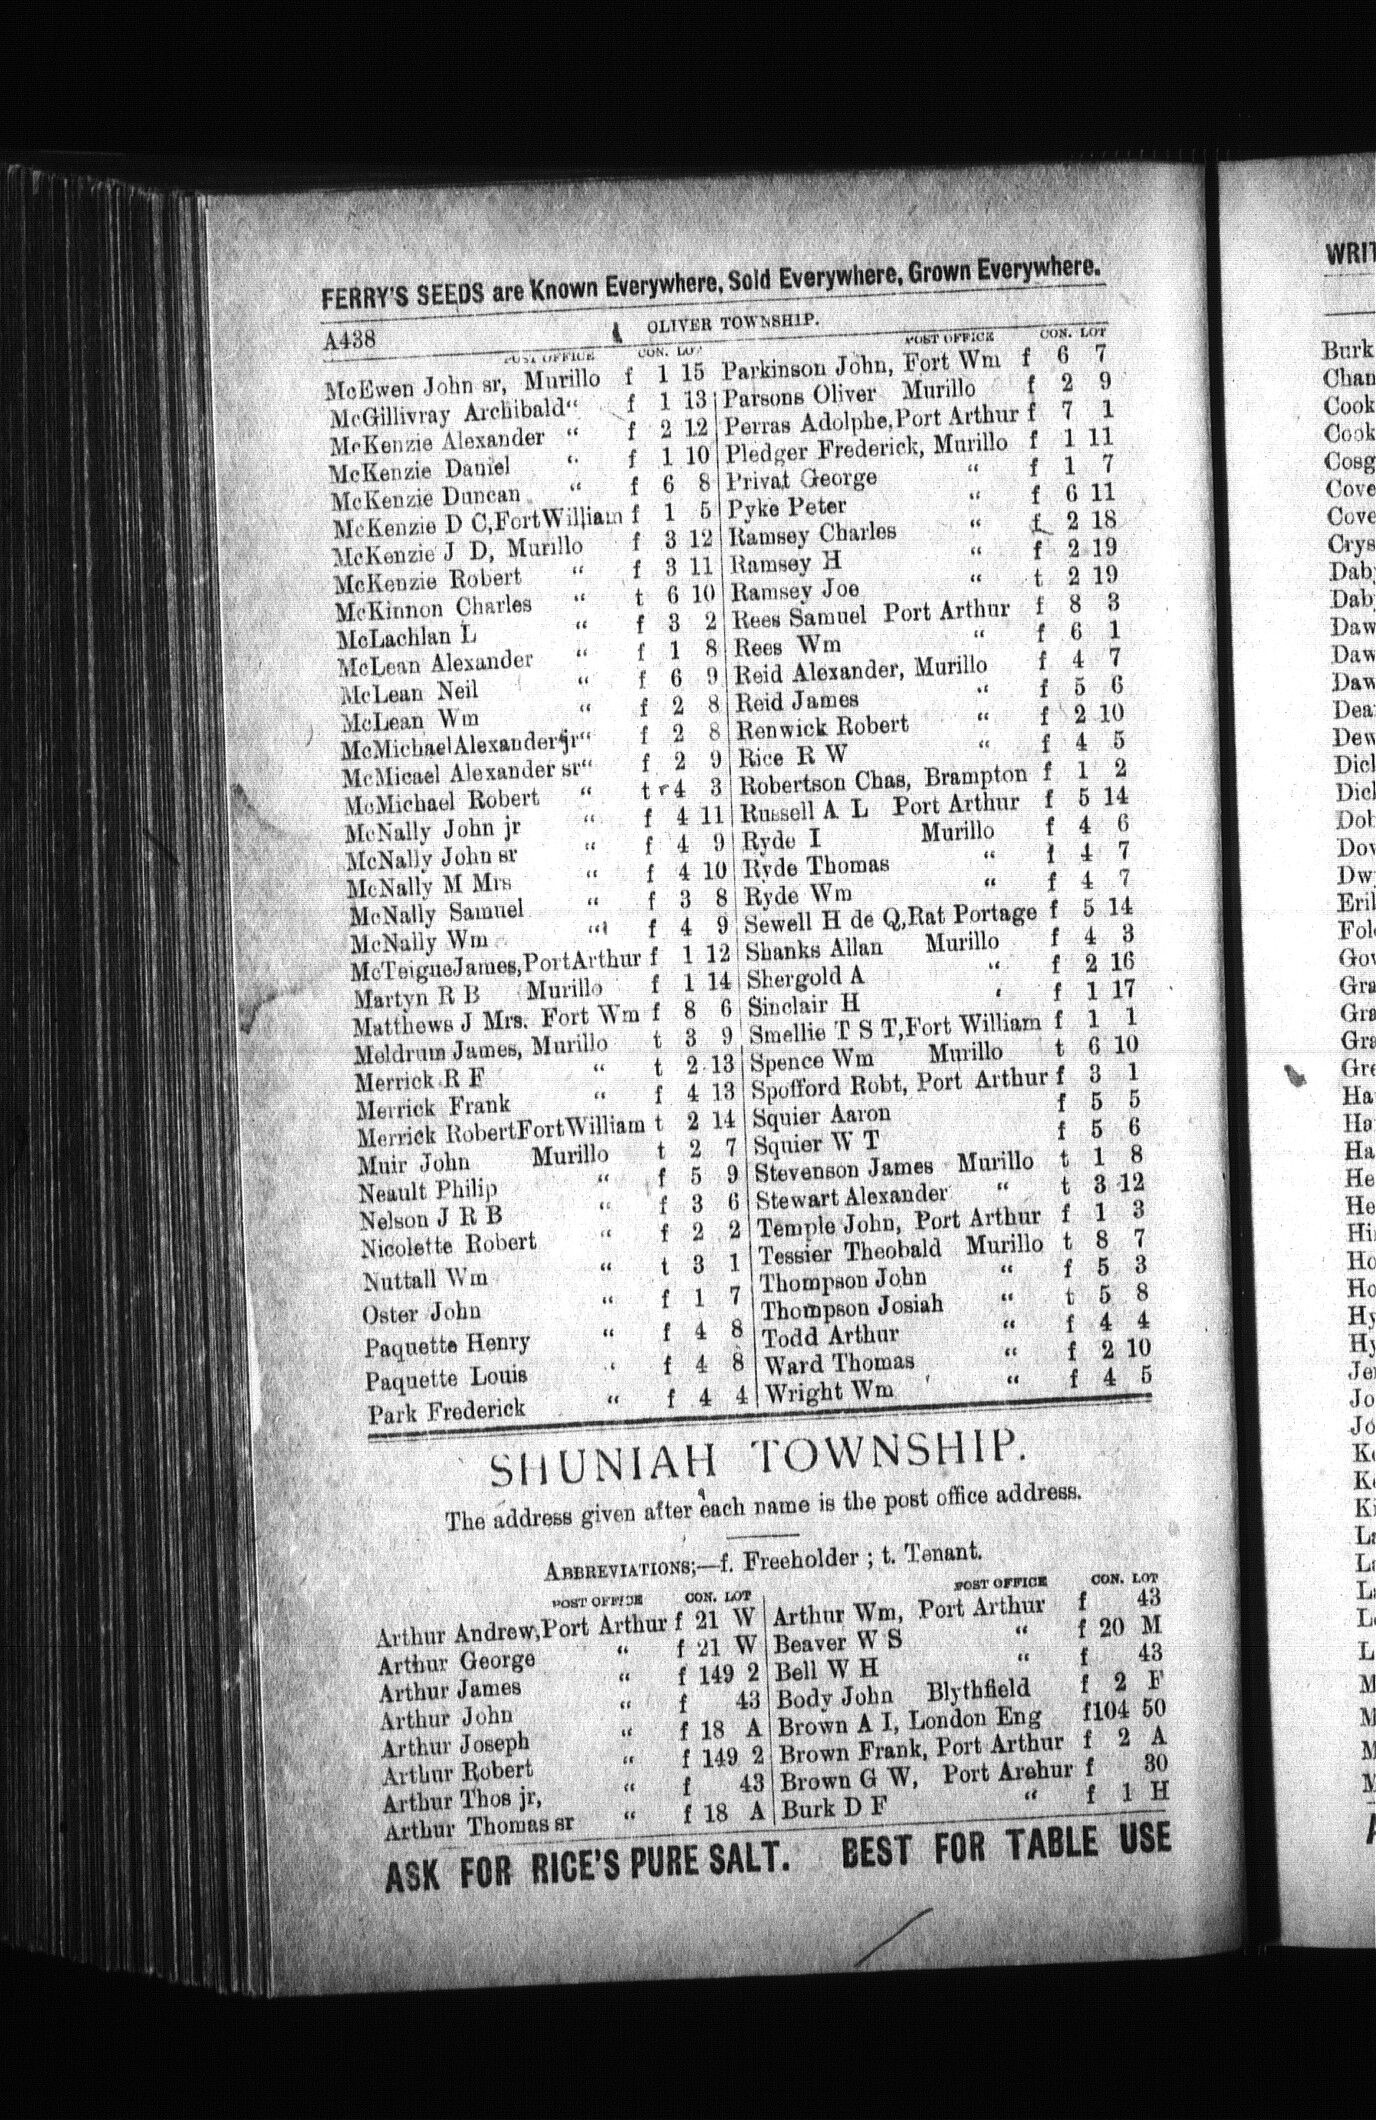 FERRY'S SEEDS are Known Everywhere, Sold Everywhere, Grown Everywhere.
A438 OLIVER TOWNSHIP.
POST OFFICE CON. LOT
McEwen John sr, Murillo f 1 15
McGillivray Archibald “ f 1 13
McKenzie Alexander “ f 2 12
McKenzie Daniel “ f 1 10
McKenzie Duncan “ f 6 8
McKenzie D C, Fort William f 1 5
McKenzie J D, Murillo f 3 12
McKenzie Robert “ f 3 11
McKinnon Charles “ t 6 10
McLachlan L “ f 3 2
McLean Alexander “ f 1 8
McLean Neil “ f 6 9
McLean Wm “ f 2 8
McMichael Alexander jr “ f 2 8
McMicael Alexander sr “ f 2 9
McMichael Robert “ t 4 3
McNally John jr “ f 4 11
McNally John sr “ f 4 9
McNally M Mrs “ f 4 10
McNally Samuel “ f 3 8
McNally Wm “ f 4 9
McTeigue James, Port Arthur f 1 12
Martyn R B Murillo f 1 14
Matthews J Mrs. Fort Wm f 8 6
Meldrum James, Murillo t 3 9
Merrick R F “ t 2 13
Merrick Frank “ f 4 13
Merrick Robert Fort William t 2 14
Muir John Murillo t 2 7
Neault Philip “ f 5 9
Nelson J R B “ f 3 6
Nicolette Robert “ f 2 2
Nuttall Wm “ t 3 1
Oster John “ f 1 7
Paquette Henry “ f 4 8
Paquette Louis “ f 4 8
Park Frederick “ f 4 4
POST OFFICE CON. LOT
Parkinson John, Fort Wm f 6 7
Parsons Oliver Murillo f 2 9
Perras Adolphe, Port Arthur f 7 1
Pledger Frederick, Murillo f 1 11
Privat George “ f 1 7
Pyke Peter “ f 6 11
Ramsey Charles “ f 2 18
Ramsey H “ f 2 19
Ramsey Joe “ t 2 19
Rees Samuel Port Arthur f 8 3
Rees Wm “ f 6 1
Reid Alexander, Murillo f 4 7
Reid James “ f 5 6
Renwick Robert “ f 2 10
Rice R W “ f 4 5
Robertson Chas, Brampton f 1 2
Russell A L Port Arthur f 5 14
Ryde I Murillo f 4 6
Ryde Thomas “ f 4 7
Ryde Wm “ f 4 7
Sewell H de Q, Rat Portage f 5 14
Shanks Allan Murillo f 4 3
Shergold A “ f 2 16
Sinclair H ‘ f 1 17
Smellie T S T, Fort William f 1 1
Spence Wm Murillo t 6 10
Spofford Robt, Port Arthur f 3 1
Squier Aaron f 5 5
Squier W T f 5 6
Stevenson James Murillo t 1 8
Stewart Alexander “ t 3 12
Temple John, Port Arthur f 1 3
Tessier Theobald Murillo t 8 7
Thompson John “ f 5 3
Thompson Josiah “ t 5 8
Todd Arthur “ f 4 4
Ward Thomas “ f 2 10
Wright Wm “ f 4 5
SHUNIAH TOWNSHIP.
The address given after each name is the post office address.
ABBREVIATIONS;—f. Freeholder ; t. Tenant.
POST OFFICE CON. LOT
Arthur Andrew, Port Arthur f 21 W
Arthur George “ f 21 W
Arthur James “ f 149 2
Arthur John “ f 43
Arthur Joseph “ f 18 A
Arthur Robert “ f 149 2
Arthur Thos jr, “ f 43
Arthur Thomas sr “ f 18 A
POST OFFICE CON. LOT
Arthur Wm, Port Arthur f 43
Beaver W S “ f 20 M
Bell W H “ f 43
Body John Blythfield f 2 F
Brown A I, London Eng f 104 50
Brown Frank, Port Arthur f 2 A
Brown G W, Port Arehur f 30
Burk D F “ f 1 H
ASK FOR RICE'S PURE SALT. BEST FOR TABLE USE
WRIT
Burk
Chan
Cook
Cook
Cosg
Cove
Cove
Crys
Daw
Daw
Daw